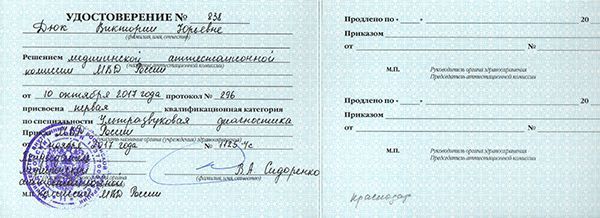 УДОСТОВЕРЕНИЕ № 838
Дюк Виктории Юрьевне
(фамилия, имя, отчество)
Решением медицинской аттестационной
комиссии МВД России
от 10 октября 2017 года протокол № 296
присвоена первая квалификационная категория
по специальности Ультразвуковая диагностика
МВД России
ноября 2017 года № 1125 л/с
В.А. Сидоренко
(фамилия, имя, отчество)
М.П. комиссии МВД России
Продлено по « » 20
Приказом
от №
М.П. Руководитель органа здравоохранения
Председатель аттестационной комиссии
Продлено по « » 20
Приказом
от №
М.П. Руководитель органа здравоохранения
Председатель аттестационной комиссии
Краснодар